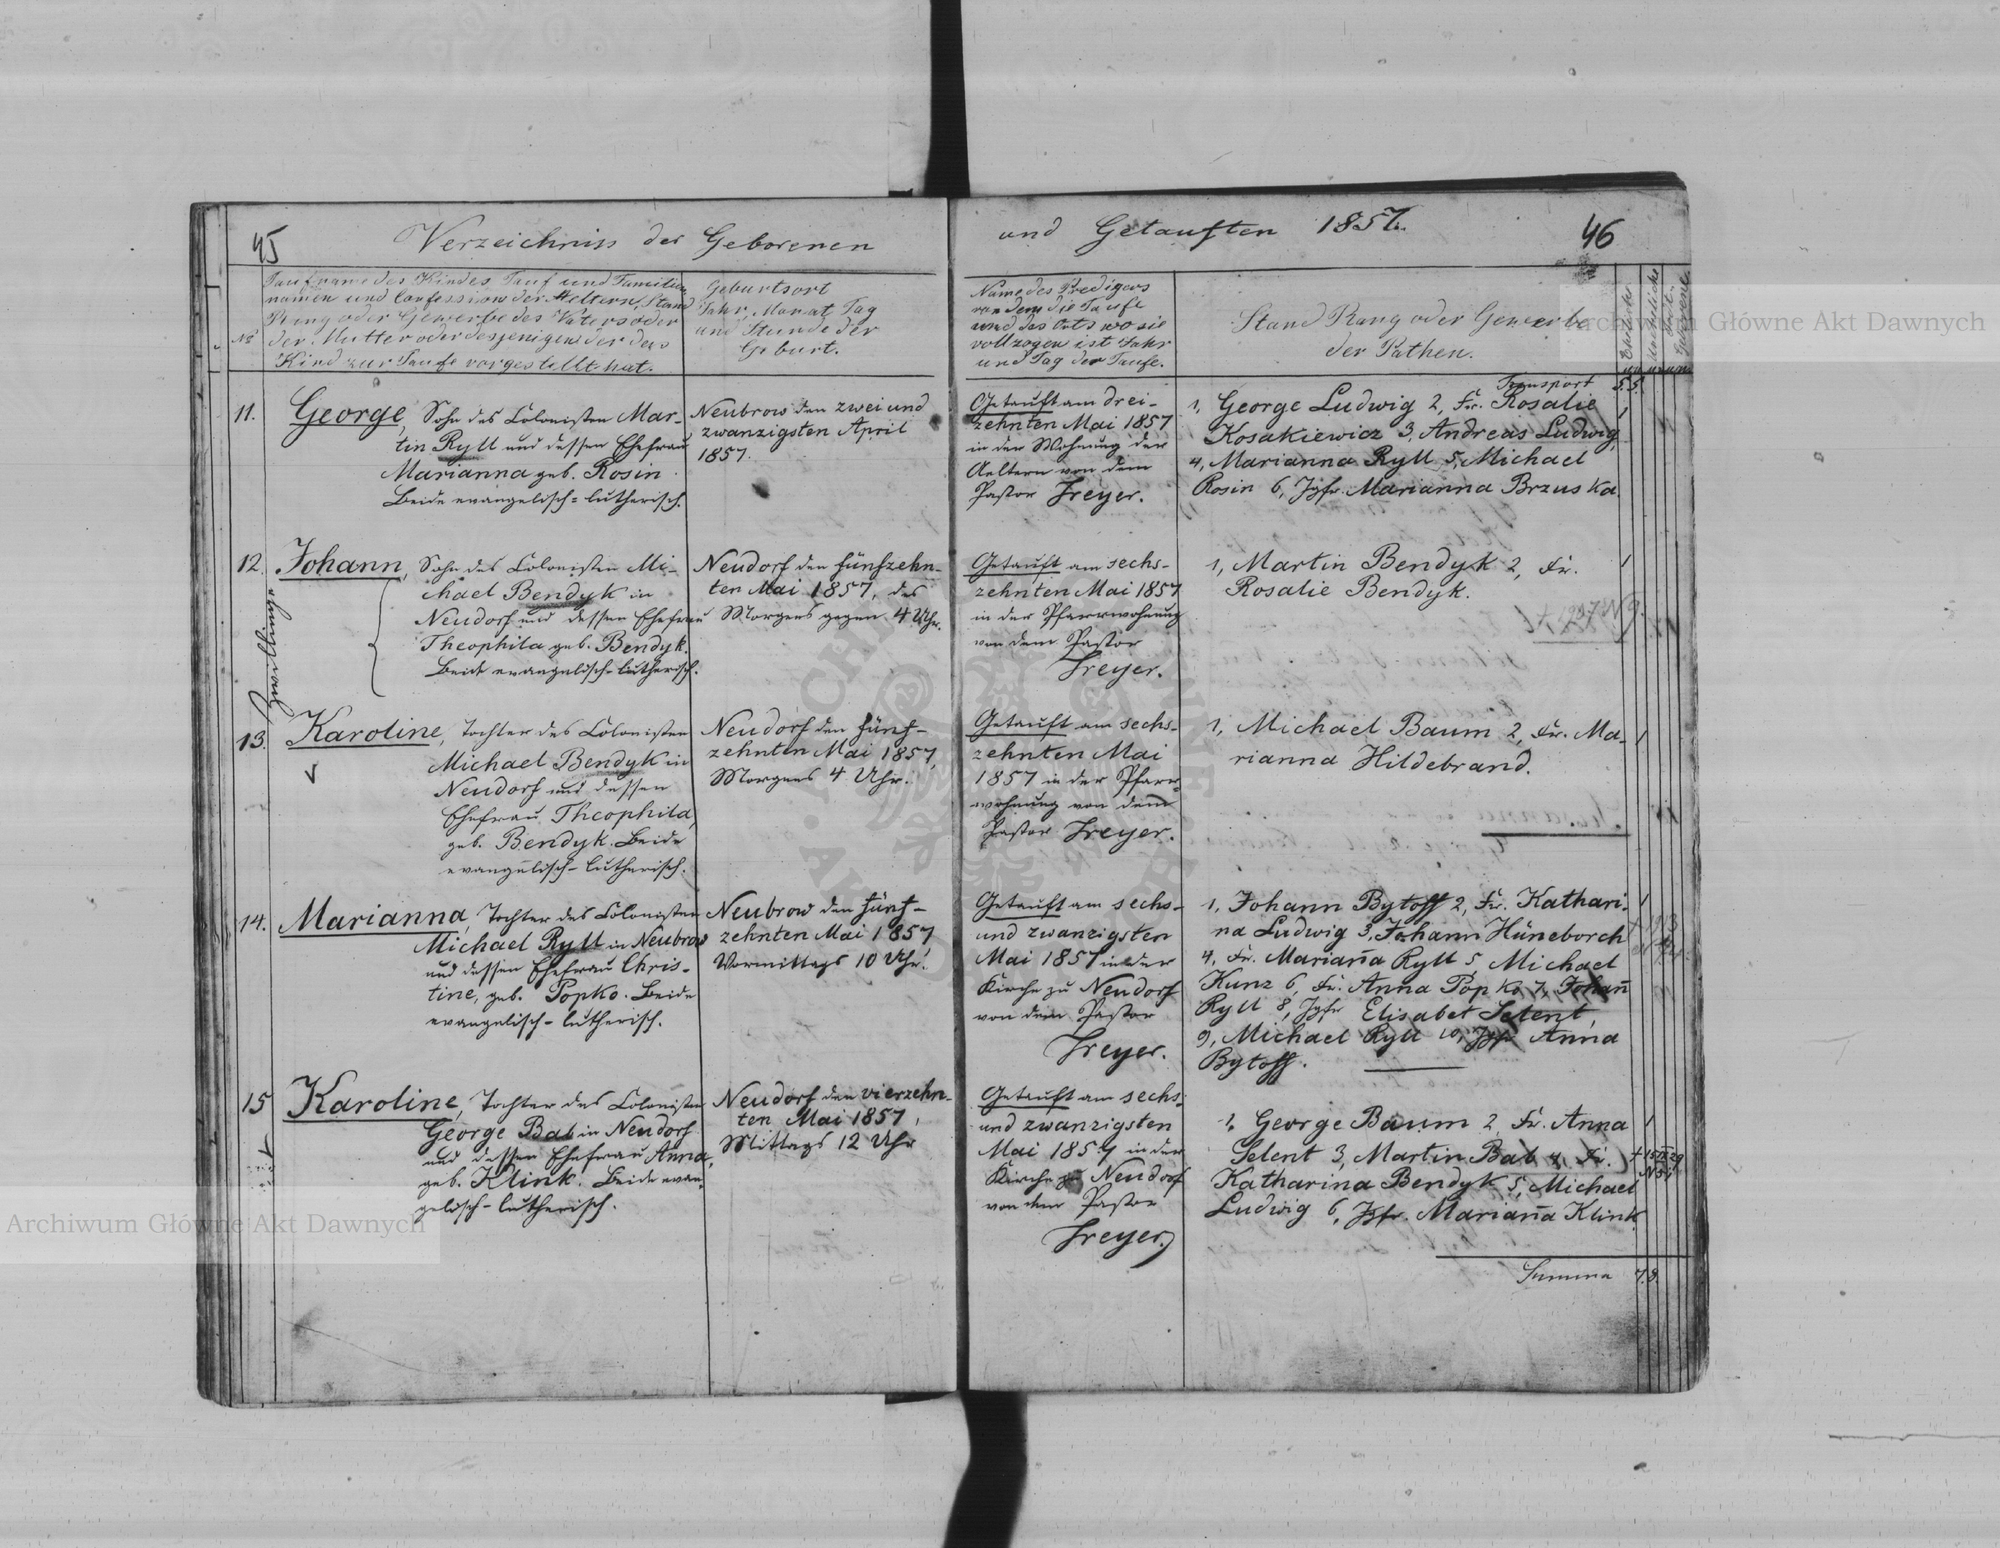 45
Verzeichniss der Geborenen
Nо
Taufname des Kindes, Tauf und Familien
namen und Confession der Aeltern, Stand
Rang oder Gewerbe des Vaters oder
der Mutter oder desjenigen der das
Kind zur Taufe vorgestellt hat.
Geburtsort
Jahr, Monat Tag
und Stunde der
Geburt.
11.
George, Sohn des Colonisten Mar-
tin Ryll und dessen Ehefrau
Marianna geb. Rosin
Beide evangelisch-lutherisch.
Neubrow den zwei und
zwanzigsten April
1857.
Zwillinge
12.
Johann, Sohn des Colonisten Mi-
chael Bendyk in
Neudorf und dessen Ehefrau
Theophila geb. Bendyk.
Beide evangelisch-lutherisch.
Neudorf den fünfzehn-
ten Mai 1857, des
Morgens gegen 4 Uhr.
13.
Karoline, Tochter des Colonisten
Michael Bendyk in
Neudorf und dessen
Ehefrau Theophila,
geb. Bendyk. Beide
evangelisch-lutherisch.
Neudorf den fünf-
zehnten Mai 1857,
Morgens 4 Uhr.
14.
Marianna, Tochter des Colonisten
Michael Ryll in Neubrow
und dessen Ehefrau Chris-
tine, geb. Popko. Beide
evangelisch-lutherisch.
Neubrow den fünf-
zehnten Mai 1857
Vormittags 10 Uhr.
15
Karoline, Tochter des Colonisten
George Bab in Neudorf
und dessen Ehefrau Anna,
geb. Klink. Beide evan-
gelisch-lutherisch.
Neudorf den vierzehn-
ten Mai 1857,
Mittags 12 Uhr
und Getauften 1857.
46
Name des Predigers
von dem die Taufe
und des Orts wo sie
vollzogen ist Jahr
und Tag der Taufe.
Stand Rang oder Gewerbe
der Pathen.
Eheliche
Uneheliche
Todt-
Geborene
Transport 5.5.
Getauft am drei-
zehnten Mai 1857
in der Wohnung der
Aeltern von dem
Pastor Freyer.
1, George Ludwig 2, Fr. Rosalie
Kosakiewicz 3, Andreas Ludwig,
4, Marianna Ryll 5, Michael
Rosin 6, Jgfr. Marianna Brzuska.
1
Getauft am sechs-
zehnten Mai 1857
in der Pfarrwohnung
von dem Pastor
Freyer.
1, Martin Bendyk 2, Fr.
Rosalie Bendyk.
1
Getauft am sechs-
zehnten Mai
1857 in der Pfarr-
wohnung von dem
Pastor Freyer.
1, Michael Baum 2, Fr. Ma-
rianna Hildebrand.
1
Getauft am sechs-
und zwanzigsten
Mai 1857 in der
Kirche zu Neudorf
von dem Pastor
Freyer.
1, Johann Bytoff 2, Fr. Kathari-
na Ludwig 3, Johann Hüneborch
4, Fr. Mariana Ryll 5, Michael
Kunz 6, Fr. Anna Popko 7, Johan̄
Ryll 8, Jgfr Elisabet Selent,
9, Michael Ryll 10, Jgfr Anna
Bytoff.
1
Getauft am sechs-
und zwanzigsten
Mai 1857 in der
Kirche zu Neudorf
von dem Pastor
Freyer.
1, George Baum 2, Fr. Anna
Selent 3, Martin Bab 4, Fr.
Katharina Bendyk 5, Michael
Ludwig 6, Jgfr. Marian̄a Klink.
1
Summa 7.8.
Archiwum Główne Akt Dawnych
Archiwum Główne Akt Dawnych